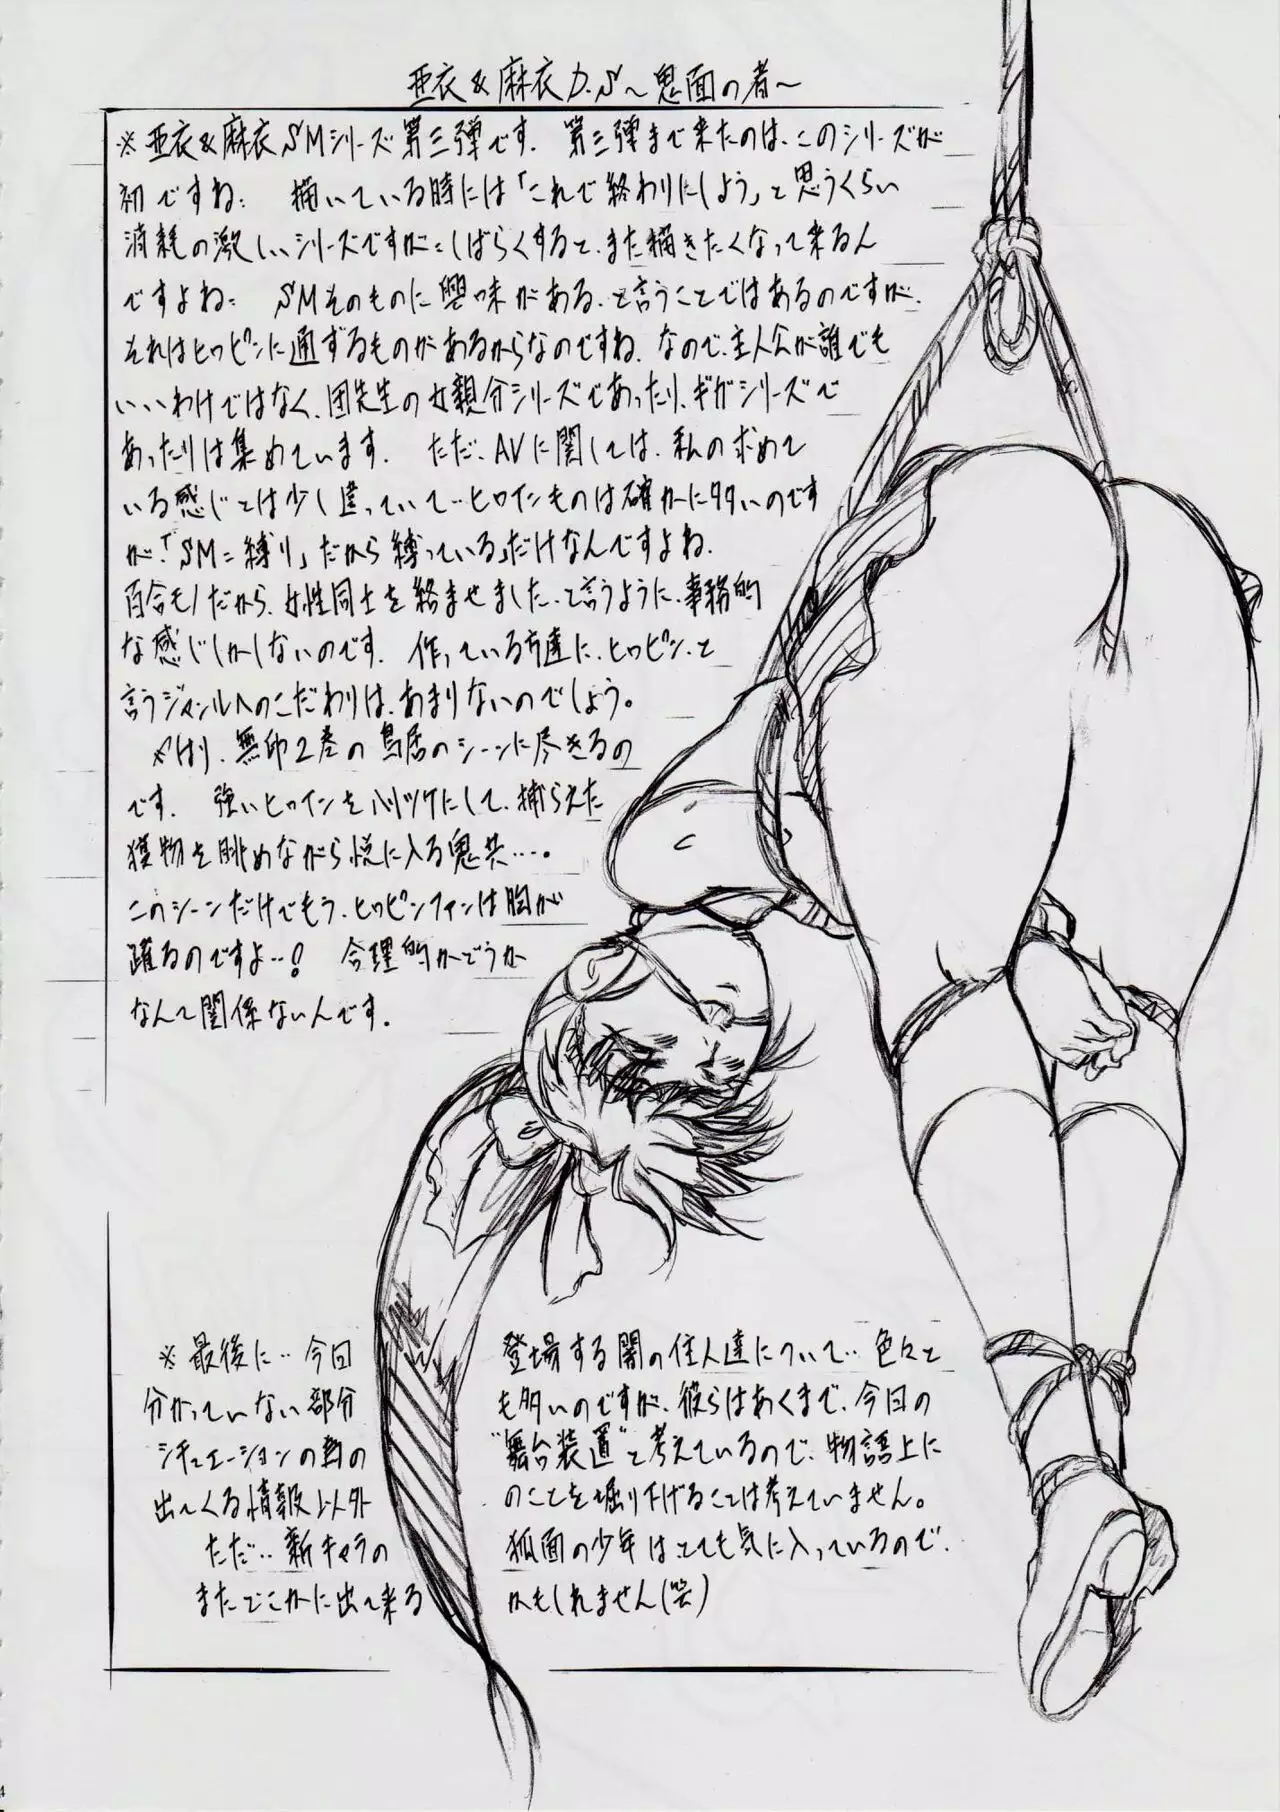 亜衣&麻衣D.S～鬼面の者～
※亜衣&麻衣SMシリーズ第三弾です. 第三弾まで来たのは、このシリーズが
初ですね: 描いている時には「これで終わりにしよう」と思うくらい
消耗の激しいシリーズですが:しばらくすると、また描きたくなって来るん
ですよね: SMそのものに興味がある、と言うことではあるのですが、
それはヒロピンに通ずるものがあるからなのですね、なので、主人公が誰でも
いいわけではなく、団先生の女親分シリーズであったり、ギガシリーズで
あったりは集めています. ただ、AVに関しては、私の求めて
いる感じとは少し違っていて‥ヒロインものは確かに多いのです
が、「SM=縛り」だから縛っている」だけなんですよね.
百合モノだから、女性同士を絡ませました、と言うように、事務的
な感じしかしないのです. 作っている方達に、ヒロピン、と
言うジャンルへのこだわりは、あまりないのでしょう。
やはり、無印2巻の鳥居のシーンに尽きるの
です. 強いヒロインをハリツケにして、捕らえた
獲物を眺めながら悦に入る鬼共…。
このシーンだけでもう、ヒロピンファンは胸が
躍るのですよ‥! 合理的かどうか
なんて関係ないんです.
※最後に‥今回 登場する闇の住人達について‥色々と
分かっていない部分 も多いのですが、彼らはあくまで、今回の
シチュエーションの為の "舞台装置"と考えているので、物語上に
出てくる情報以外 のことを堀り下げることは考えていません。
ただ‥新キャラの 狐面の少年はとても気に入っているので、
またどこかに出て来る かもしれません(笑)